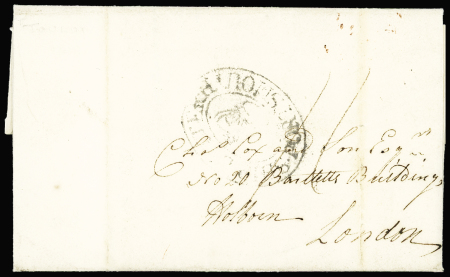 Cox and Son Esqrs
No 20 Bartletts Buildings
Holborn
London